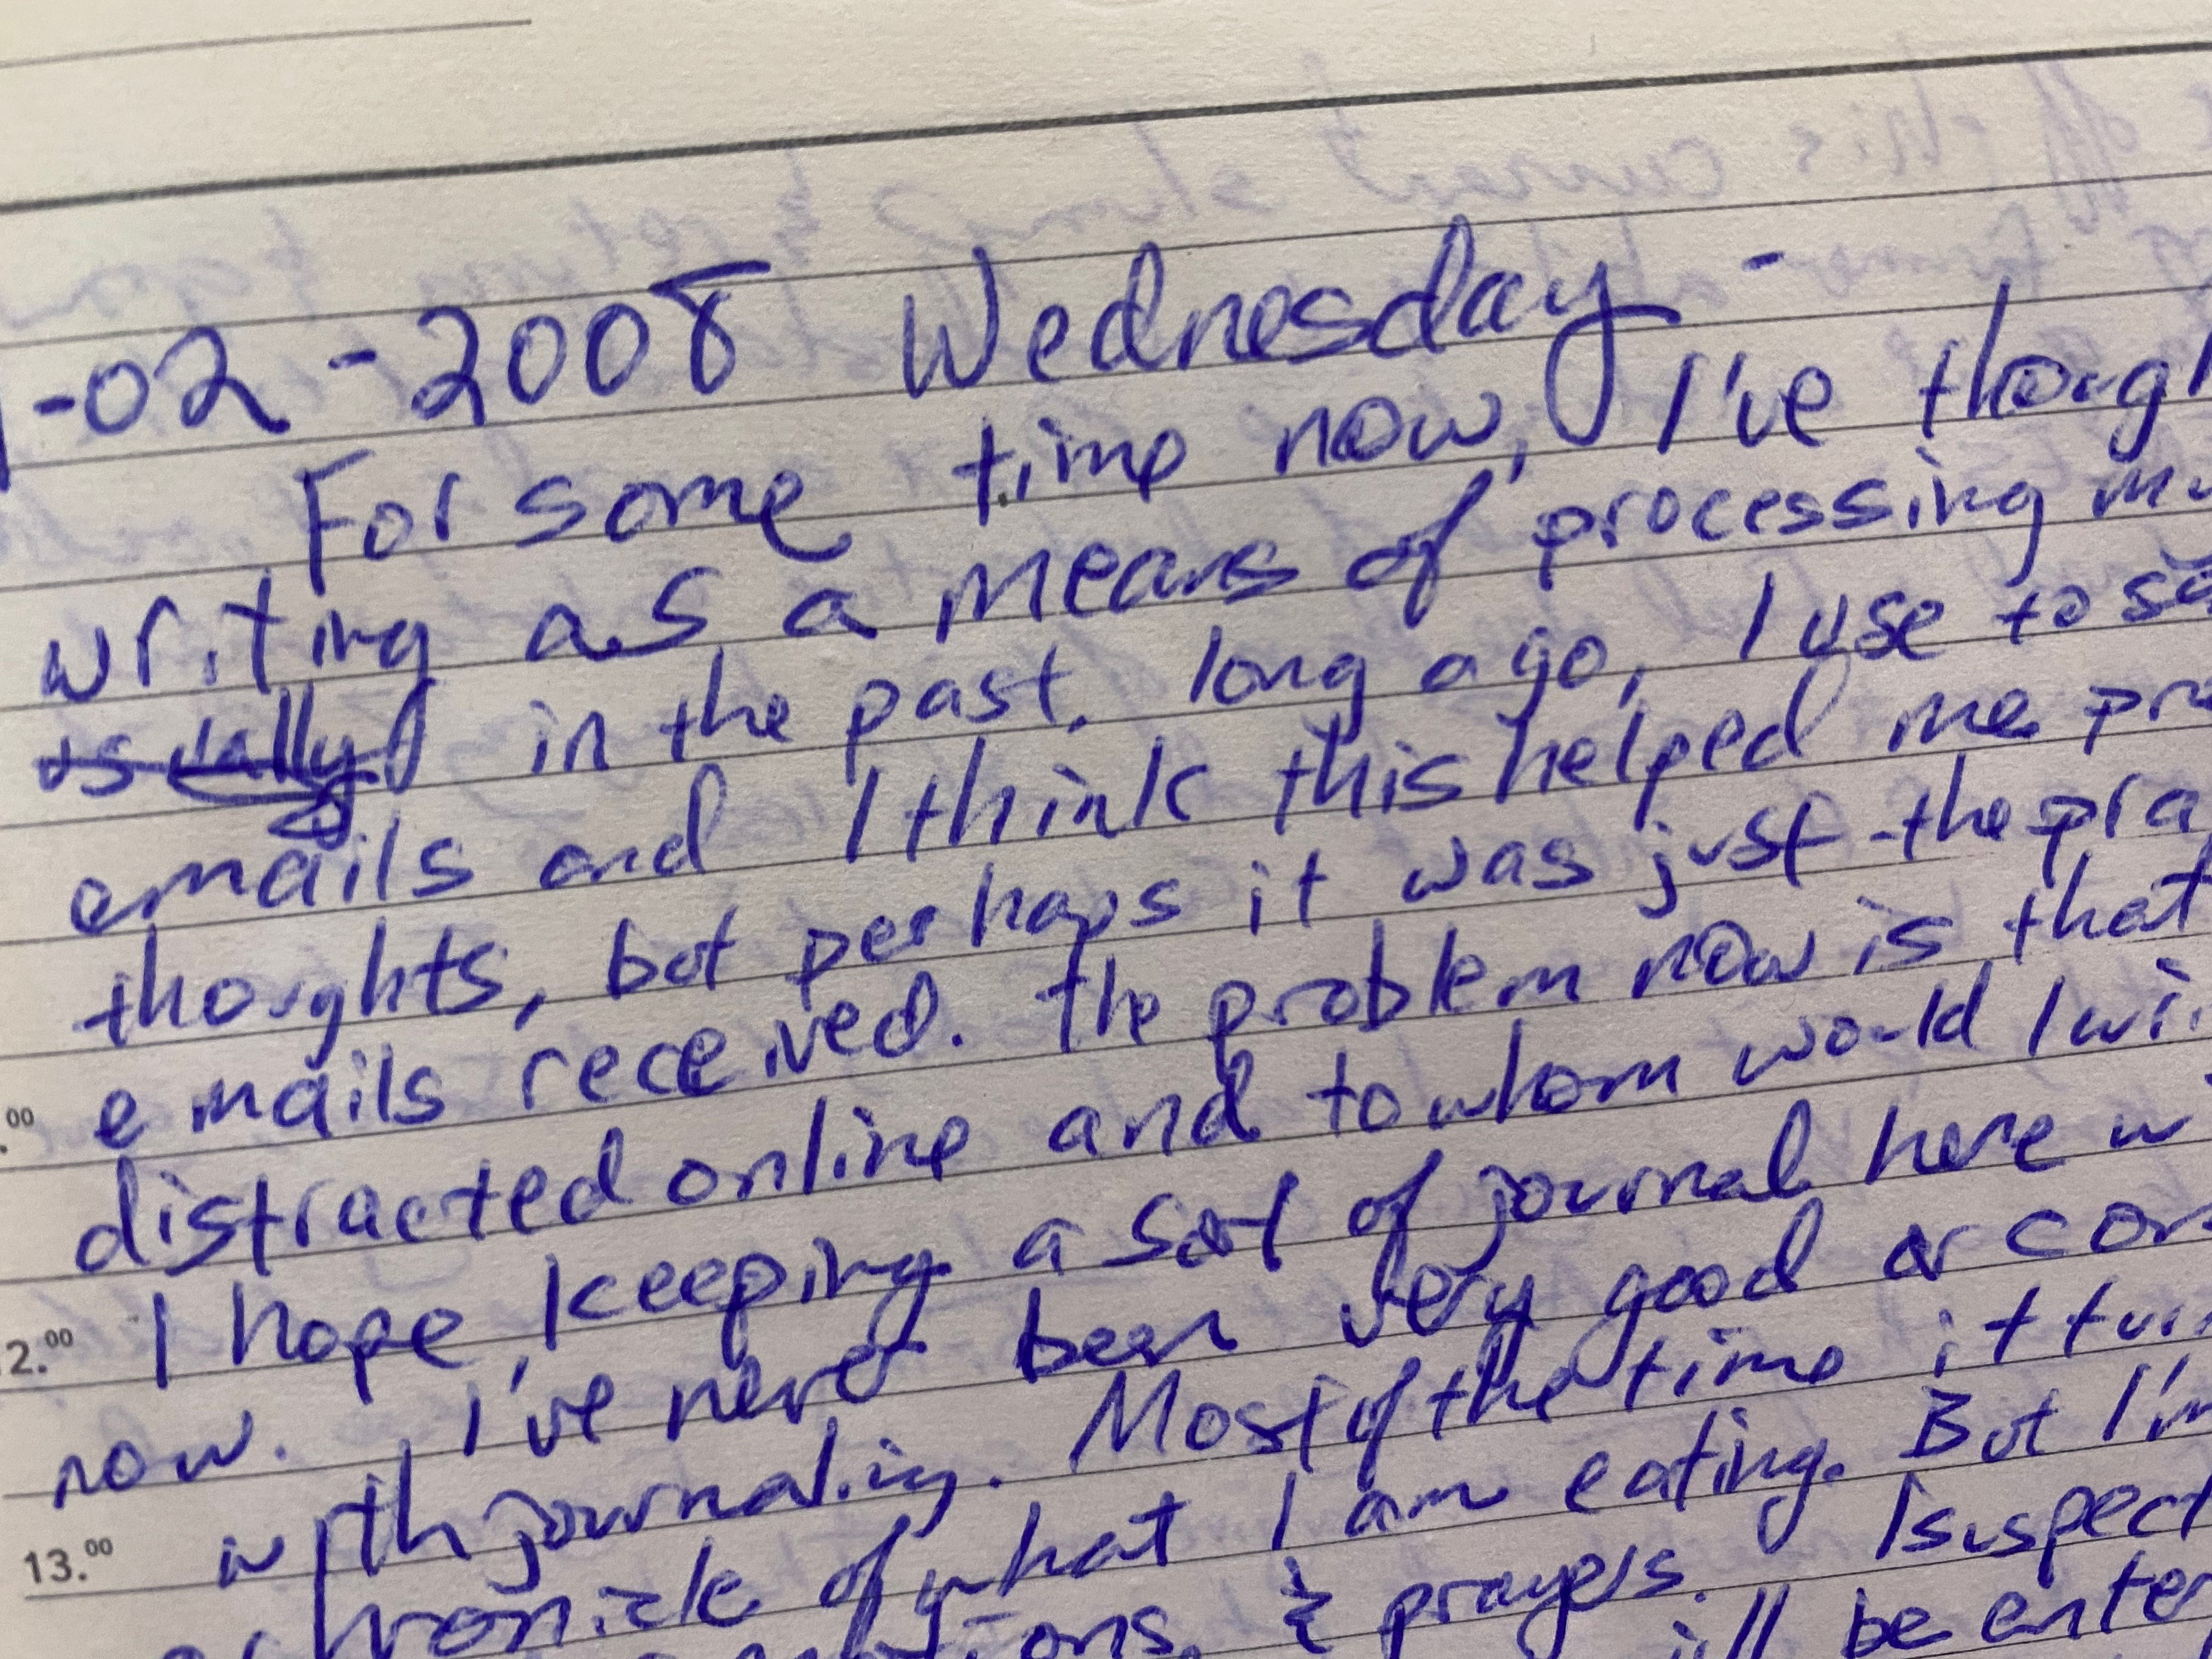 -02-2008 Wednesday -
For some time now, I've though
writing as a means of processing m
usually in the past. long ago, I use to se
emails and I think this helped me pr
thoughts, but perhaps it was just the pra
.00 emails received. The problem now is that
distracted online and to whom would I wri
I hope keeping a sort of journal here w
2.00 now. I've never been very good or con
with journaling. Most of the time it tur
13.00 chronicle of what I am eating. But I'm
& prayers. I suspect
ill be enter